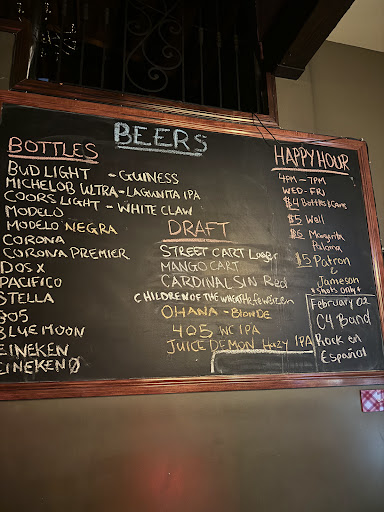 BEERS
BOTTLES
BUD LIGHT - GUINESS
MICHELOB ULTRA - LAGUNITA IPA
COORS LIGHT - WHITE CLAW
MODELO
MODELO NEGRA
CORONA
CORONA PREMIER
DOS X
PACIFICO
STELLA
805
BLUE MOON
EINEKEN
EINEKEN Ø
DRAFT
STREET CART Lager
MANGO CART
CARDINAL SIN Red
CHILDREN OF THE WHEAT Hefeweizen
OHANA - BLONDE
405 WC IPA
JUICE DEMON Hazy IPA
HAPPY HOUR
4PM - 7PM
WED - FRI
$4 Bottles/Cans
$5 Well
$6 Margarita
Paloma
$5 Patron
&
Jameson
*Shots Only*
February 02
C4 Band
Rock en
Español